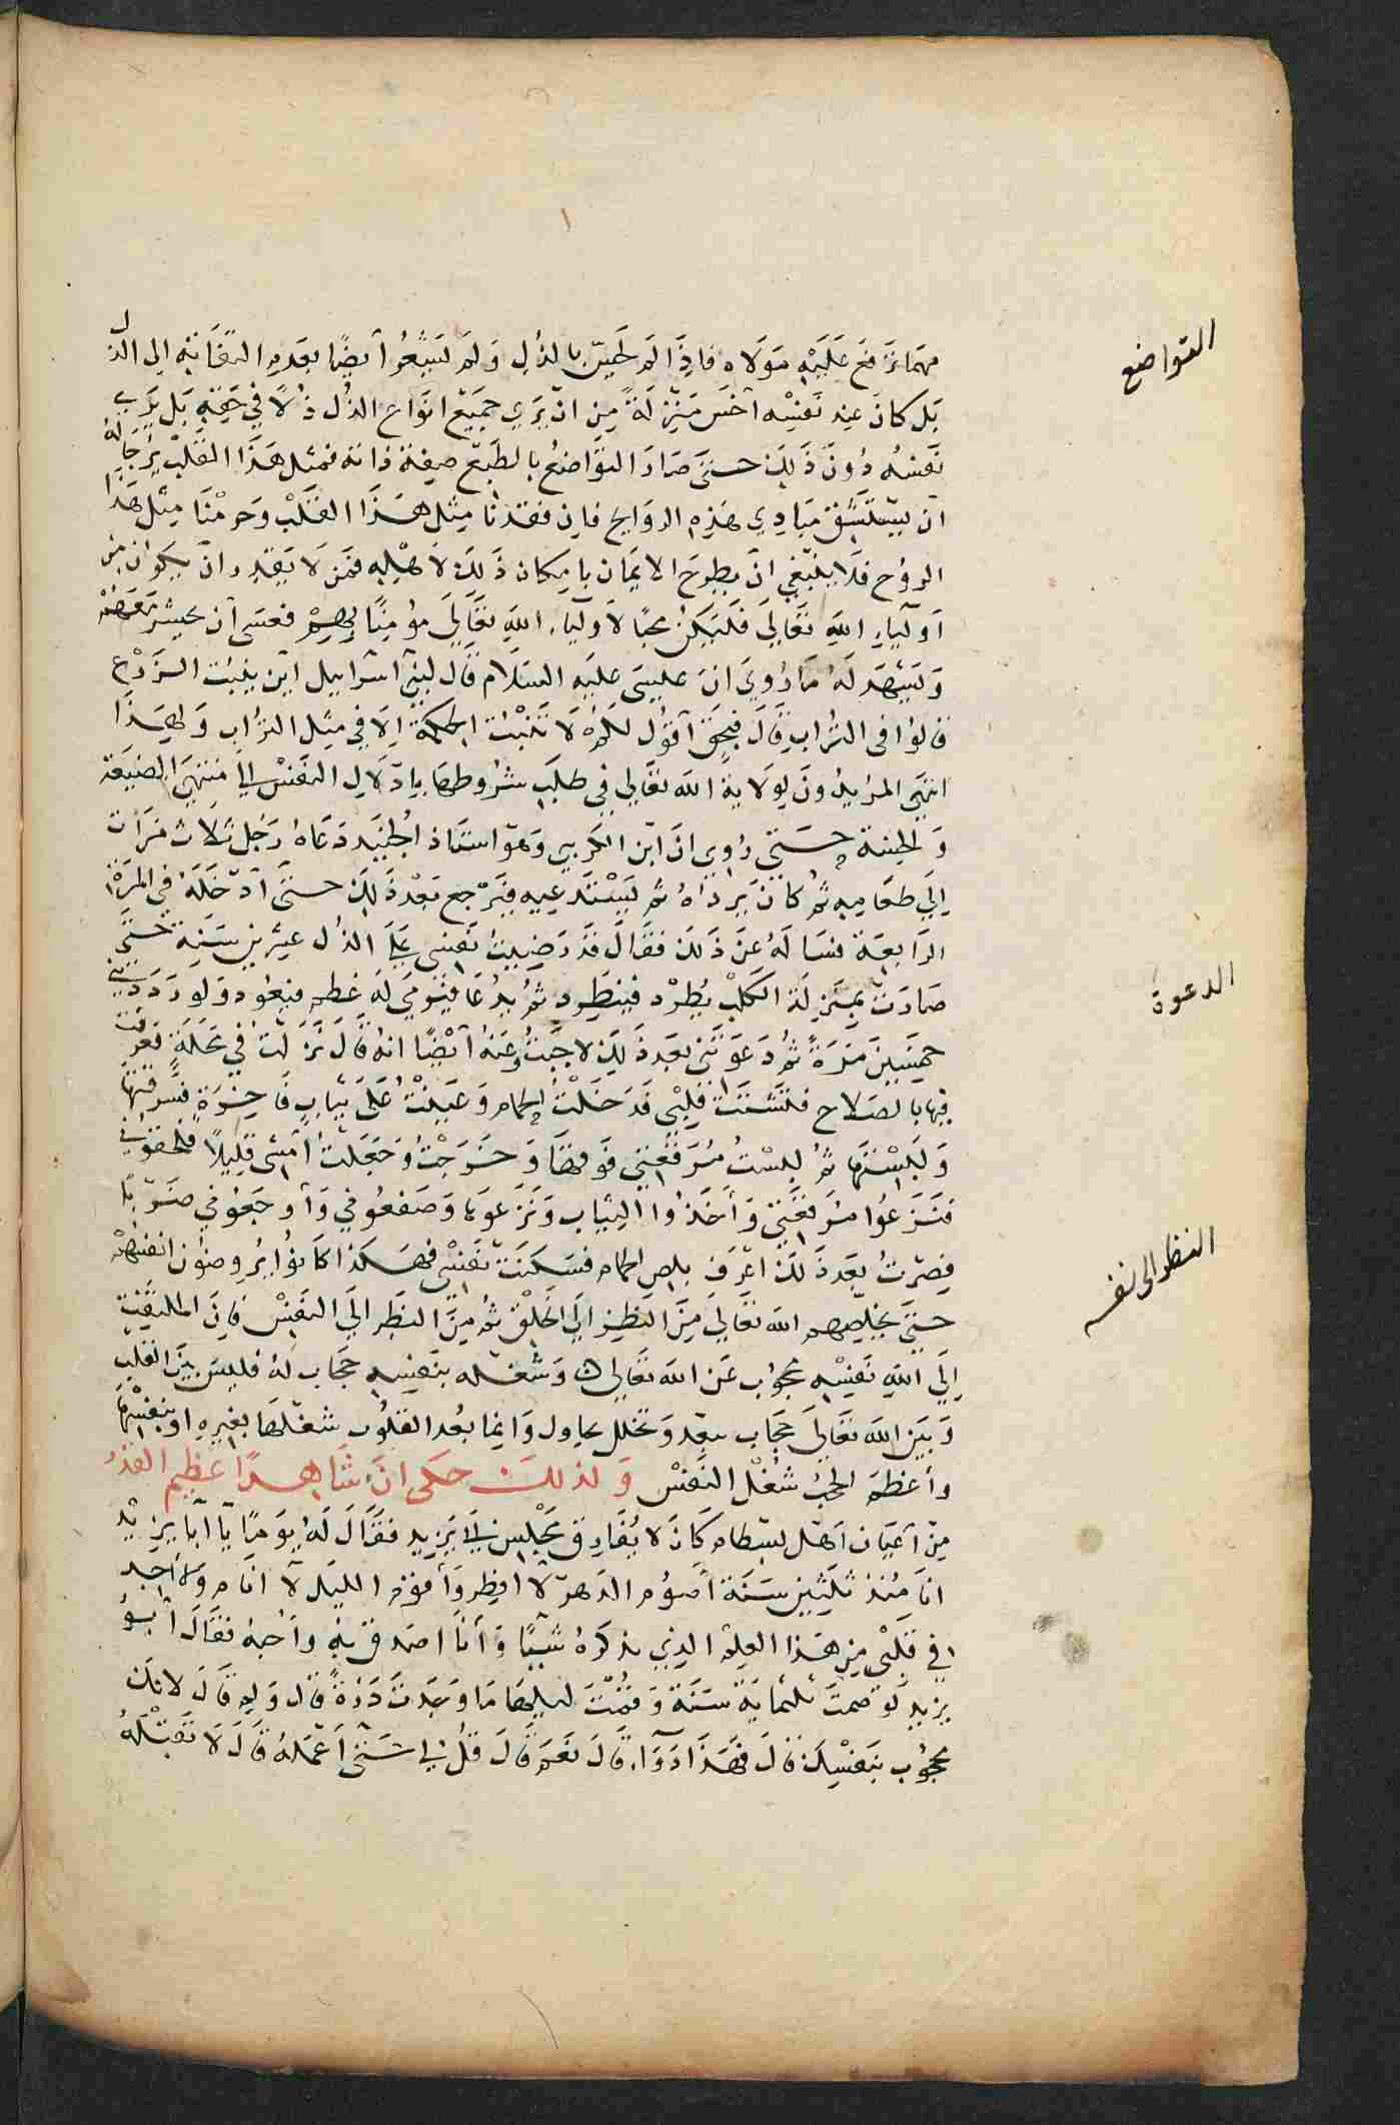 ١
التواضع
مهما ترفع عَلَيْهِ مَوْلَاه فاِذَا لَم يُحِسّ بالذُلِ وَلَمْ يَشْعُر اَيضًا بعَدمِ التفاتِهِ اِلى الذل
بَل كانَ عِند نَفسِه اَخسّ مَنزِلَةً مِن ان يَرى جميعَ انوَاع الذُل ذُلًا في حَقِهِ بَل يَرى
نَفسَهُ دُونَ ذَلِكَ حتىَ صَارَ التوَاضعُ بالطَبع صِفة ذاته فمثل هَذَا القلبْ يُرجَا لَهُ
ان يستَنشِقَ مَبَادي هَذِهِ الروَايح فاِن فقدنا مِثل هَذَا القَلبْ وَحرمنَا مِثلَ هَذَا
الروُح فلا ينبَغي ان يطرحَ الايمَان باِمكان ذَلِكَ لاَهلِهِ فمَن لا يَقدر ان يكون مِن
اَوليَاءِ اللهِ تعَالى فَليَكنْ محبًا لاَوليَاءِ اللهِ تعَالى مؤمِنًا بِهِمْ فعسَى اَن يحشر مَعَهُمْ
وَيَشهَد لَهُ مَا رُوِيَ انَ عيسَى عليَهِ السَلام قَالَ لبَني اسرَاييل اين ينبُت الزرْع
قالوُا في الترابِ قَالَ فبِحَق اقوُل لكمْ لَا تَنْبُت الحكمَة اِلَا فِي مِثل التُراب وَلِهَذا
انتهَى المرُيدُونَ لِولَاية الله تعَالى في طلَبِ شرُوطِهَا باِذلَالِ النفسْ الى مُنتهَى الضَعَة
وَالخِسة حَتى رُوِي انَ ابن الكُريبي وَهوَ استَاذ الجُنَيد دَعَاهُ رَجُل ثلاث مَرات
اِلى طعَامِهِ ثم كانَ يردُهُ ثم يَسْتَدعِيه فيَرجع بَعْد ذَلِكَ حتىَ اَدخَلَهُ في المرَة
الرَابعَة فسَالَهُ عنَ ذَلكَ فقَالَ قَد رَضيتُ نَفسي عَلىَ الذُل عِشرِين سَنَة حَتىَ
صَارَت بمنزلَة الكَلبْ يُطرَد فينطرد ثم يدُعَا فيُرمىَ لَهُ عَظم فيعُود وَلَو رَدَدتني
الدعوة
خمسِينَ مَرَةً ثمُ دَعَوتَني بَعَد ذَلِكَ لاجَبتُ وَعَنهُ اَيْضًا انهُ قَالَ نَزلتُ في مَحَلَةٍ فعُرِفت
فيها بالصَلاح فتشتَتَ قَلبْي فَدَخَلْتُ الحمام وَعَيَنْتُ عَلَى ثِيَابٍ فَاخِرَةٍ فسَرقتهَا
وَلَبِسْتهَا ثمُ لبسْتُ مُرَقعَتي فَوقهَا وَخَرَجْتُ وَجَعَلتُ امشي قلِيلًا فلحقوُني
فنَزَعُوا مُرَقعَتي وَأَخَذُوا الثِيَاب وَنَزَعُوهَا وَصَفعُوني وَاَوجَعُوني ضرَبًا
النظر الى نفسه
فصِرتُ بَعَد ذَلكَ اعرَف بلص الحمام فسَكَنَتْ نَفسي فهَكذا كانوُا يُروضوُن انفسهمْ
حتىَ يخلِصهم الله تعَالى مِنَ النظرِ اِلى الخَلْق ثمُ مِنَ النظَر اِلى النفَسْ فاِنَ الملتفِت
اِلى اللهِ نَفسِهِ محجوُب عَن الله تعَالى وَشغله بنَفسِهِ حجَاب لَهُ فليسَ بَينَ القلبِ
وَبَين الله تعَالىَ حجَاب بعد وَتخلل حاول وَانما بُعد القلوُب شغلهَا بغيرِهِ او بنفسِهَا
وأعظم الحجُب شغْل النَفسْ وَلذلكَ حكى انَ شَاهِدًا عَظِيم القدْر
مِن اَعيَان اَهل بسطام كَانَ لا يُفَارِق مَجْلِسَ اَبي يَزِيد فقَالَ لَهُ يوَمًا يَا اَبا يزيد
انَا مُنذ ثلَثين سَنَة اَصوُم الدَهر لا افطِر وَاَقوُم الليَل لا انَام وَلا اَجِد
في قَلبْي مِن هَذا العِلم الذِي تذكرهُ شيئًا وَاَنَا اصدق بِهِ وَاحبهُ فقَالَ اَبوُ
يزيد لَو صمتَ ثلثمايَة سَنَة وَقُمتَ ليلَهَا مَا وَجَدتَ ذَرَةً قَالَ وَلِمَ قَالَ لاَنكَ
محجوُب بنَفسِكَ قَالَ فلِهَذَا دَوَاء قَالَ نَعَم قَالَ قُل لي حَتى اَعْمَلهُ قَالَ لَا تَقبْلَهُ